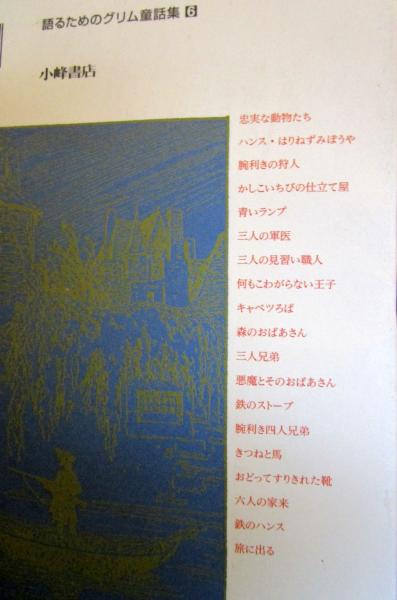 語るためのグリム童話集6
小峰書店
忠実な動物たち
ハンス・はりねずみぼうや
腕利きの狩人
かしこいちびの仕立て屋
青いランプ
三人の軍医
三人の見習い職人
何もこわがらない王子
キャベツろば
森のおばあさん
三人兄弟
悪魔とそのおばあさん
鉄のストーブ
腕利き四人兄弟
きつねと馬
おどってすりきれた靴
六人の家来
鉄のハンス
旅に出る